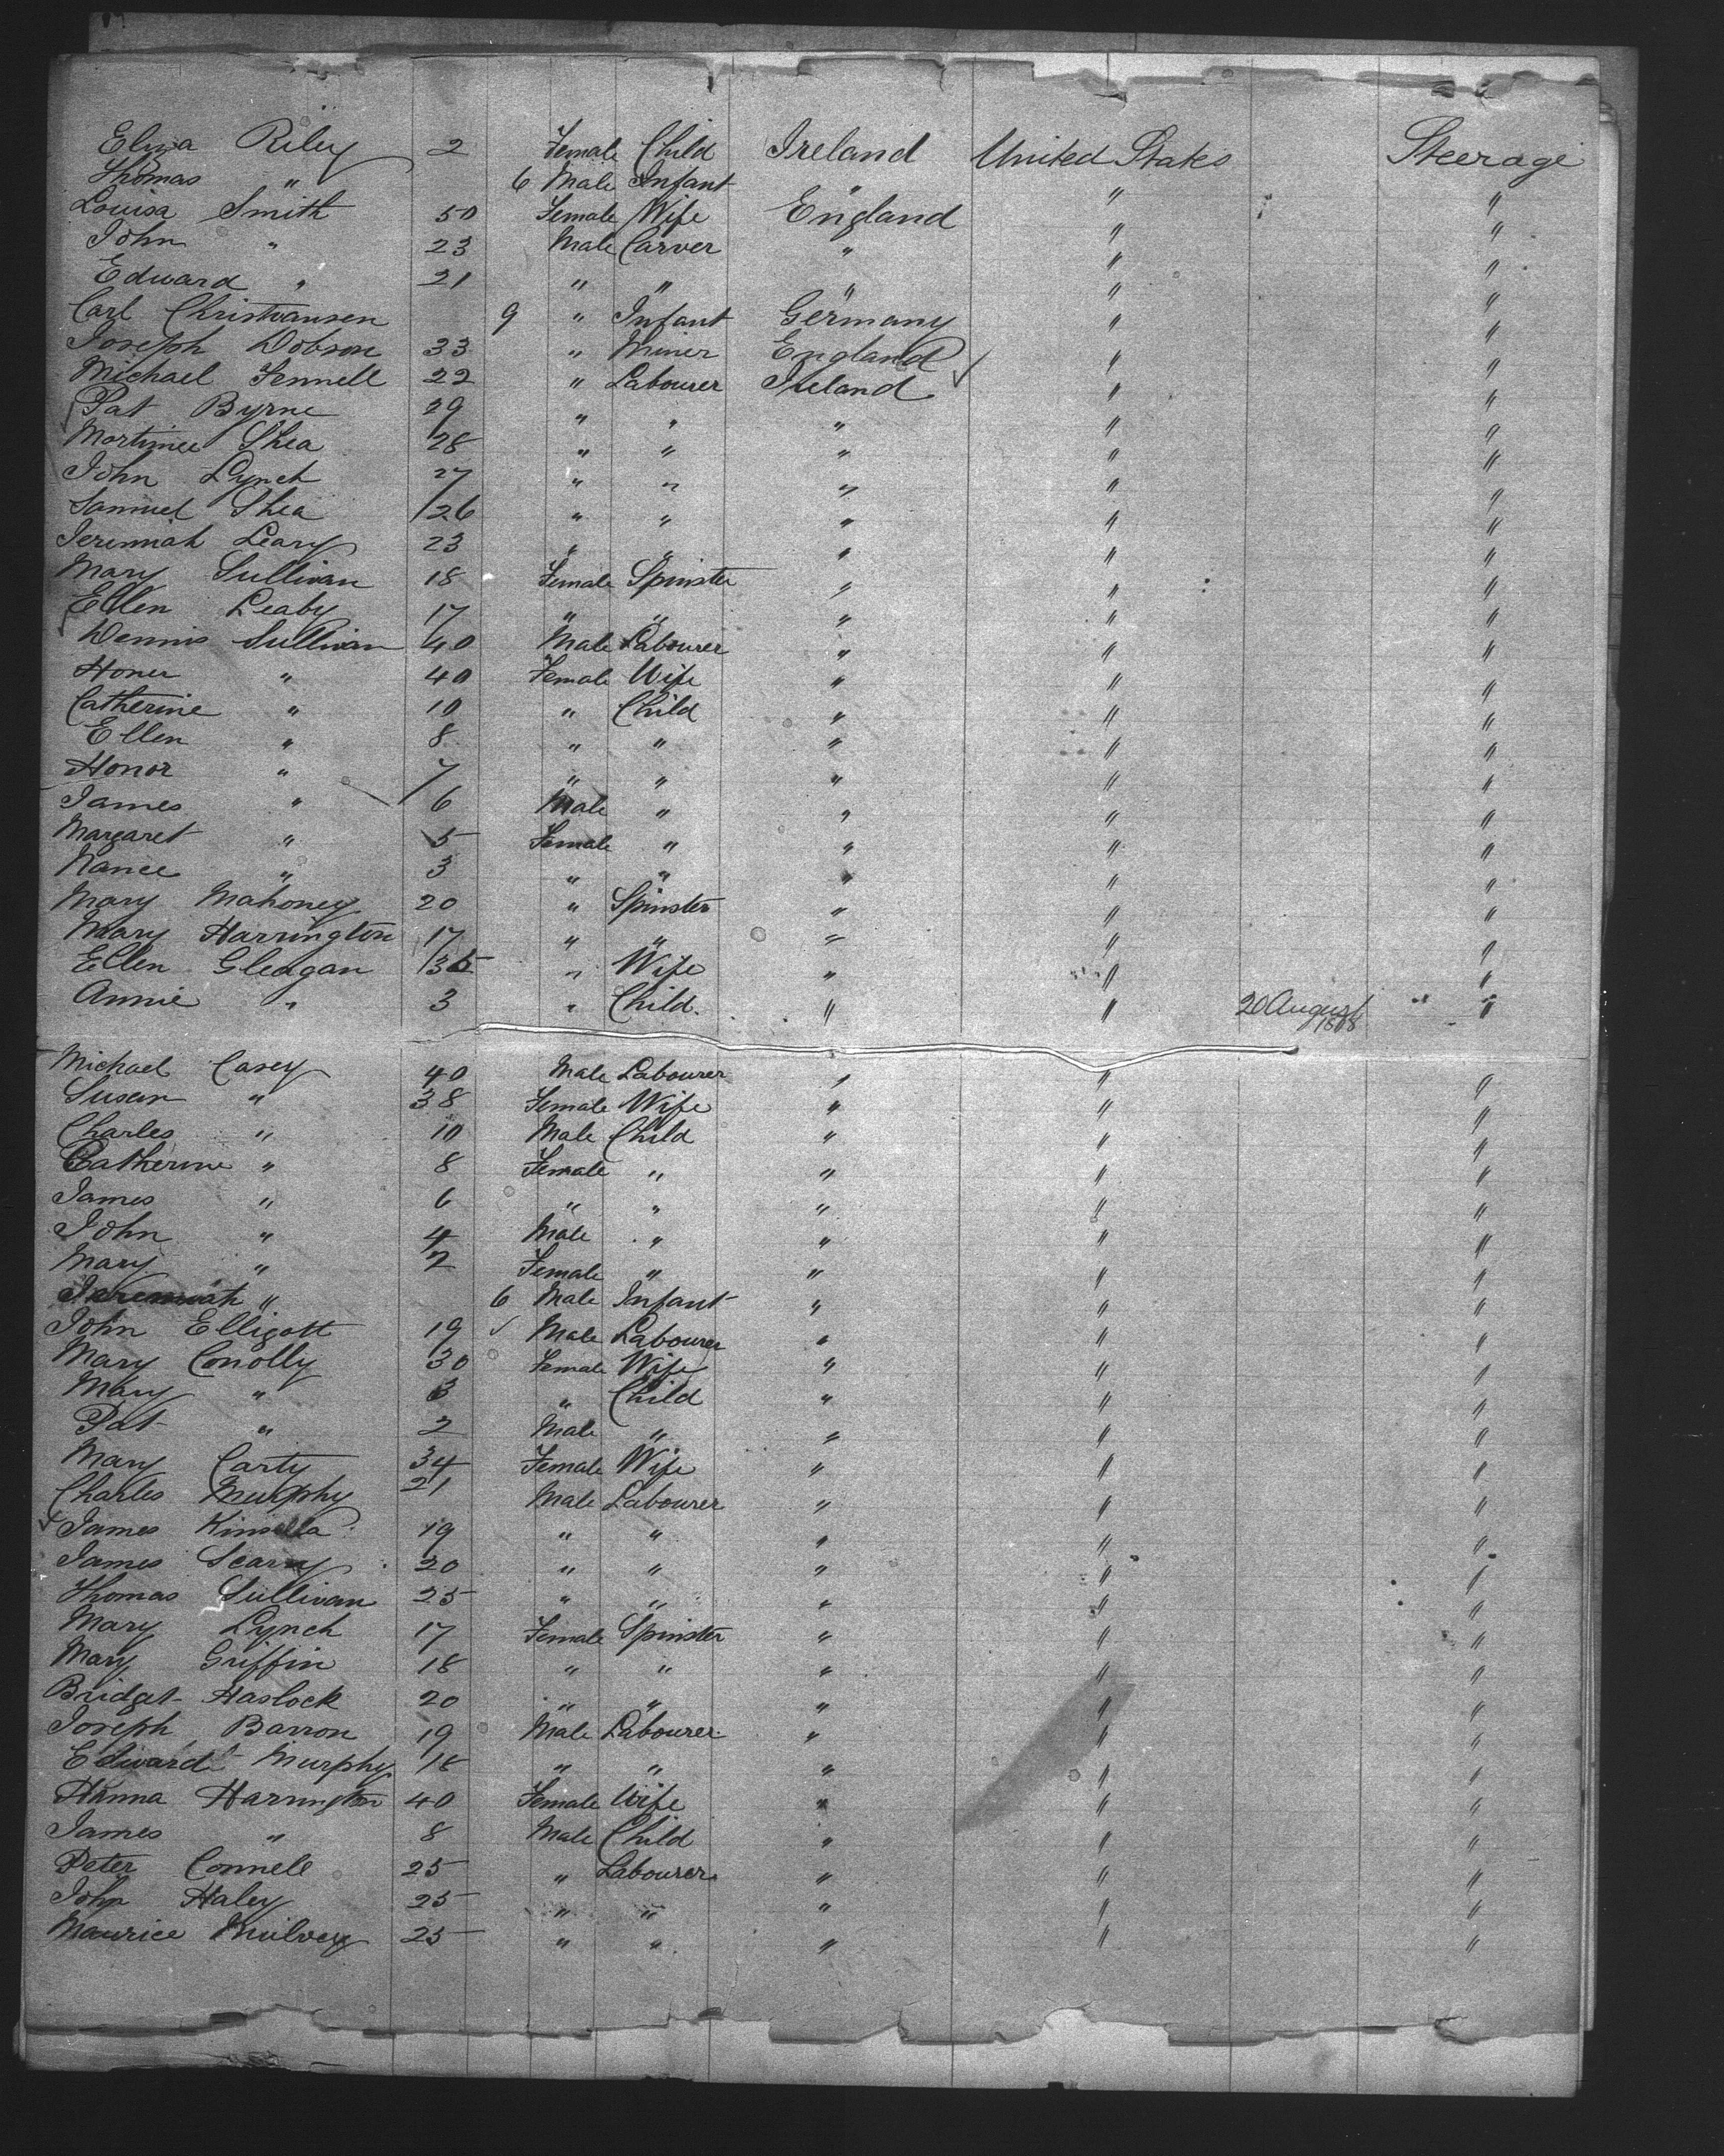 Eliza Riley 2 Female Child Ireland United States Steerage
Thomas " 6 Male Infant " " "
Louisa Smith 50 Female Wife England " "
John " 23 Male Carver " " "
Edward " 21 " " " " "
Carl Christiansen 9 " Infant Germany " "
Joseph Dobson 33 " Miner England " "
Michael Fennell 22 " Labourer Ireland " "
Pat Byrne 29 " " " " "
Mortimer Shea 28 " " " " "
John Lynch 27 " " " " "
Samuel Shea 26 " " " " "
Jeremiah Leary 23 " " " " "
Mary Sullivan 18 Female Spinster " " "
Ellen Leahy 17 " " " " "
Dennis Sullivan 40 Male Labourer " " "
Honer " 40 Female Wife " " "
Catherine " 10 " Child " " "
Ellen " 8 " " " " "
Honor " 7 " " " " "
James " 6 Male " " " "
Margaret " 5 Female " " " "
Nance " 3 " " " " "
Mary Mahoney 20 " Spinster " " "
Mary Harrington 17 " " " " "
Ellen Gleagan " Wife " " "
Annie " 3 " Child. " " 20 August "
Michael Casey 40 Male Labourer " " "
Susan " 38 Female Wife " " "
Charles " 10 Male Child " " "
Catherine " 8 Female " " " "
James " 6 " " " " "
John " 4 Male " " " "
Mary " 2 Female " " " "
Jeremiah " 6 Male Infant " " "
John Elligott 19 Male Labourer " " "
Mary Conolly 30 Female Wife " " "
Mary " 3 " Child " " "
Pat " 2 Male " " " "
Mary Carty 34 Female Wife " " "
Charles Murphy 21 Male Labourer " " "
James Kinsella 19 " " " " "
James 20 " " " " "
Thomas Sullivan 25 " " " " "
Mary Lynch 17 Female Spinster " " "
Mary Griffin 18 " " " " "
Bridget Haslock 20 " " " " "
Joseph Barron 19 Male Labourer " " "
Edward Murphy 18 " " " " "
Hanna Harrington 40 Female Wife " " "
James " 8 Male Child " " "
Peter Connell 25 " Labourer " " "
John Haley 25 " " " " "
Maurice Mulvey 25 " " " " "